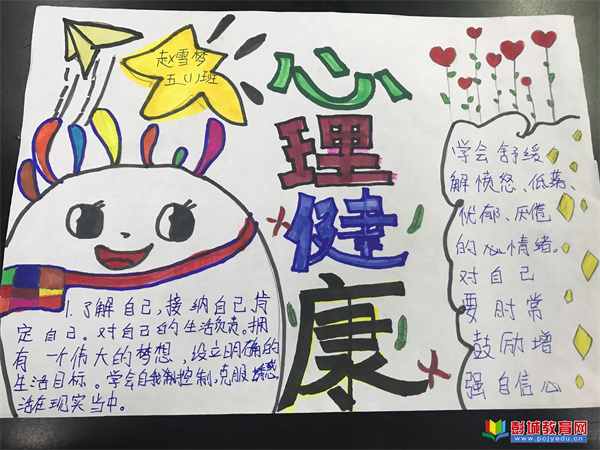 赵雪梦
五(1)班
心
理
健
康
学会舒缓
解愤怒、低落、
忧郁、厌倦
的心情绪。
对自己
要时常
鼓励增
强自信心
1.了解自己,接纳自己肯
定自己。对自己的生活负责。拥
有一个伟大的梦想,设立明确的
生活目标。学会自我控制,克服诱惑
活在现实当中。
彭城教育网
www.pcjyedu.cn